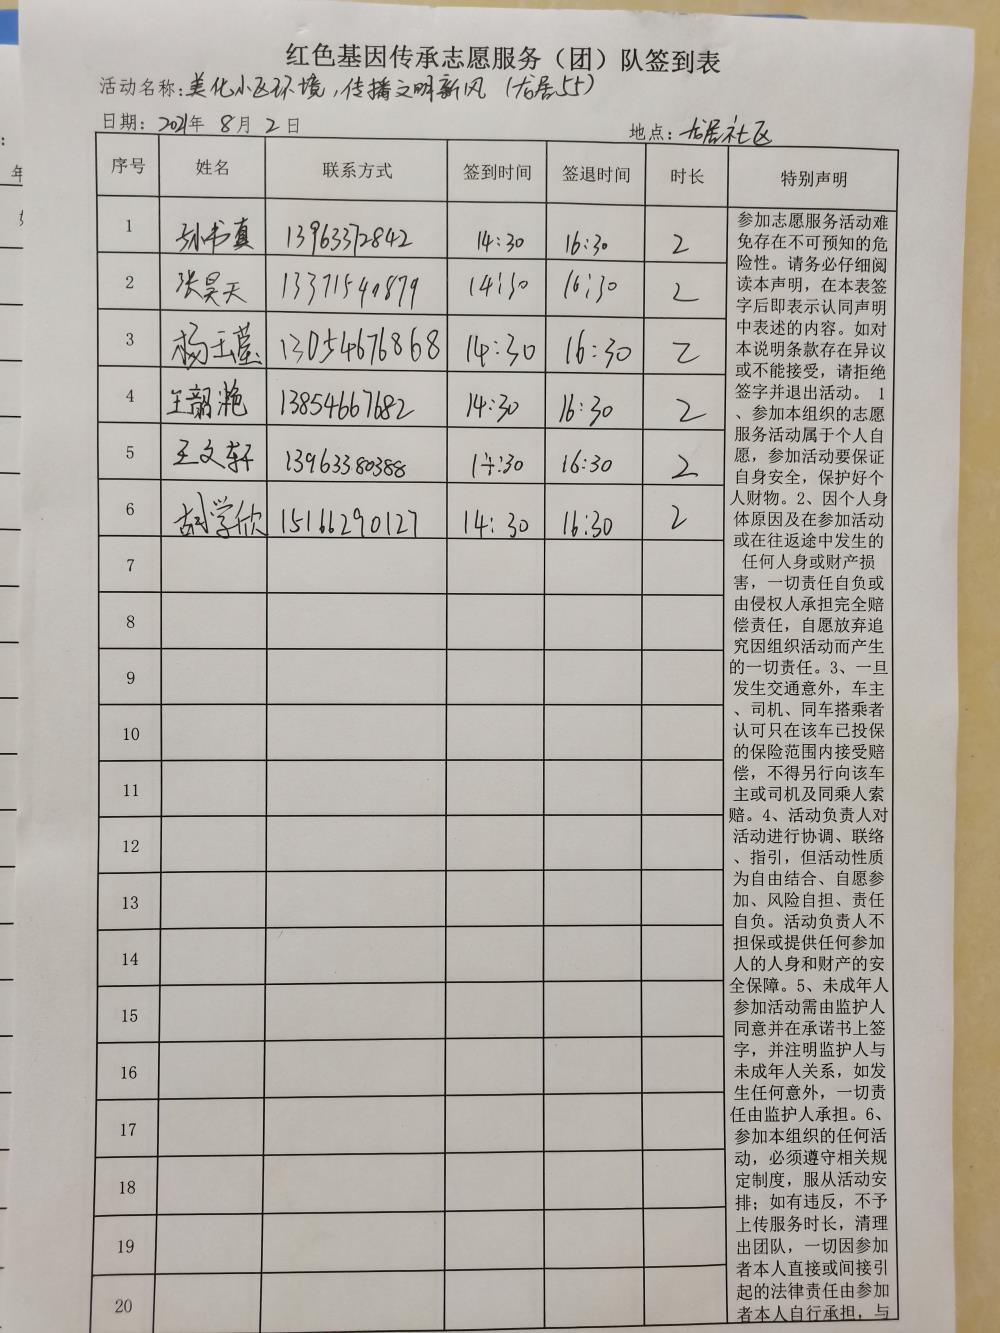 红色基因传承志愿服务（团）队签到表
活动名称：美化小区环境，传播文明新风（龙居55）
日期：2021年 8月 2日 地点：龙居社区
序号 姓名 联系方式 签到时间 签退时间 时长 特别声明
1 孙书真 13963372842 14:30 16:30 2
2 张昊天 13371540879 14:30 16:30 2
3 杨玉莹 13054676868 14:30 16:30 2
4 王韶滟 13854667682 14:30 16:30 2
5 王文轩 13963380388 14:30 16:30 2
6 胡学欣 15166290127 14:30 16:30 2
7
8
9
10
11
12
13
14
15
16
17
18
19
20
参加志愿服务活动难
免存在不可预知的危
险性。请务必仔细阅
读本声明，在本表签
字后即表示认同声明
中表述的内容。如对
本说明条款存在异议
或不能接受，请拒绝
签字并退出活动。 1
、参加本组织的志愿
服务活动属于个人自
愿，参加活动要保证
自身安全，保护好个
人财物。2、因个人身
体原因及在参加活动
或在往返途中发生的
任何人身或财产损
害，一切责任自负或
由侵权人承担完全赔
偿责任，自愿放弃追
究因组织活动而产生
的一切责任。3、一旦
发生交通意外，车主
、司机、同车搭乘者
认可只在该车已投保
的保险范围内接受赔
偿，不得另行向该车
主或司机及同乘人索
赔。4、活动负责人对
活动进行协调、联络
、指引，但活动性质
为自由结合、自愿参
加、风险自担、责任
自负。活动负责人不
担保或提供任何参加
人的人身和财产的安
全保障。5、未成年人
参加活动需由监护人
同意并在承诺书上签
字，并注明监护人与
未成年人关系，如发
生任何意外，一切责
任由监护人承担。6、
参加本组织的任何活
动，必须遵守相关规
定制度，服从活动安
排；如有违反，不予
上传服务时长，清理
出团队，一切因参加
者本人直接或间接引
起的法律责任由参加
者本人自行承担，与